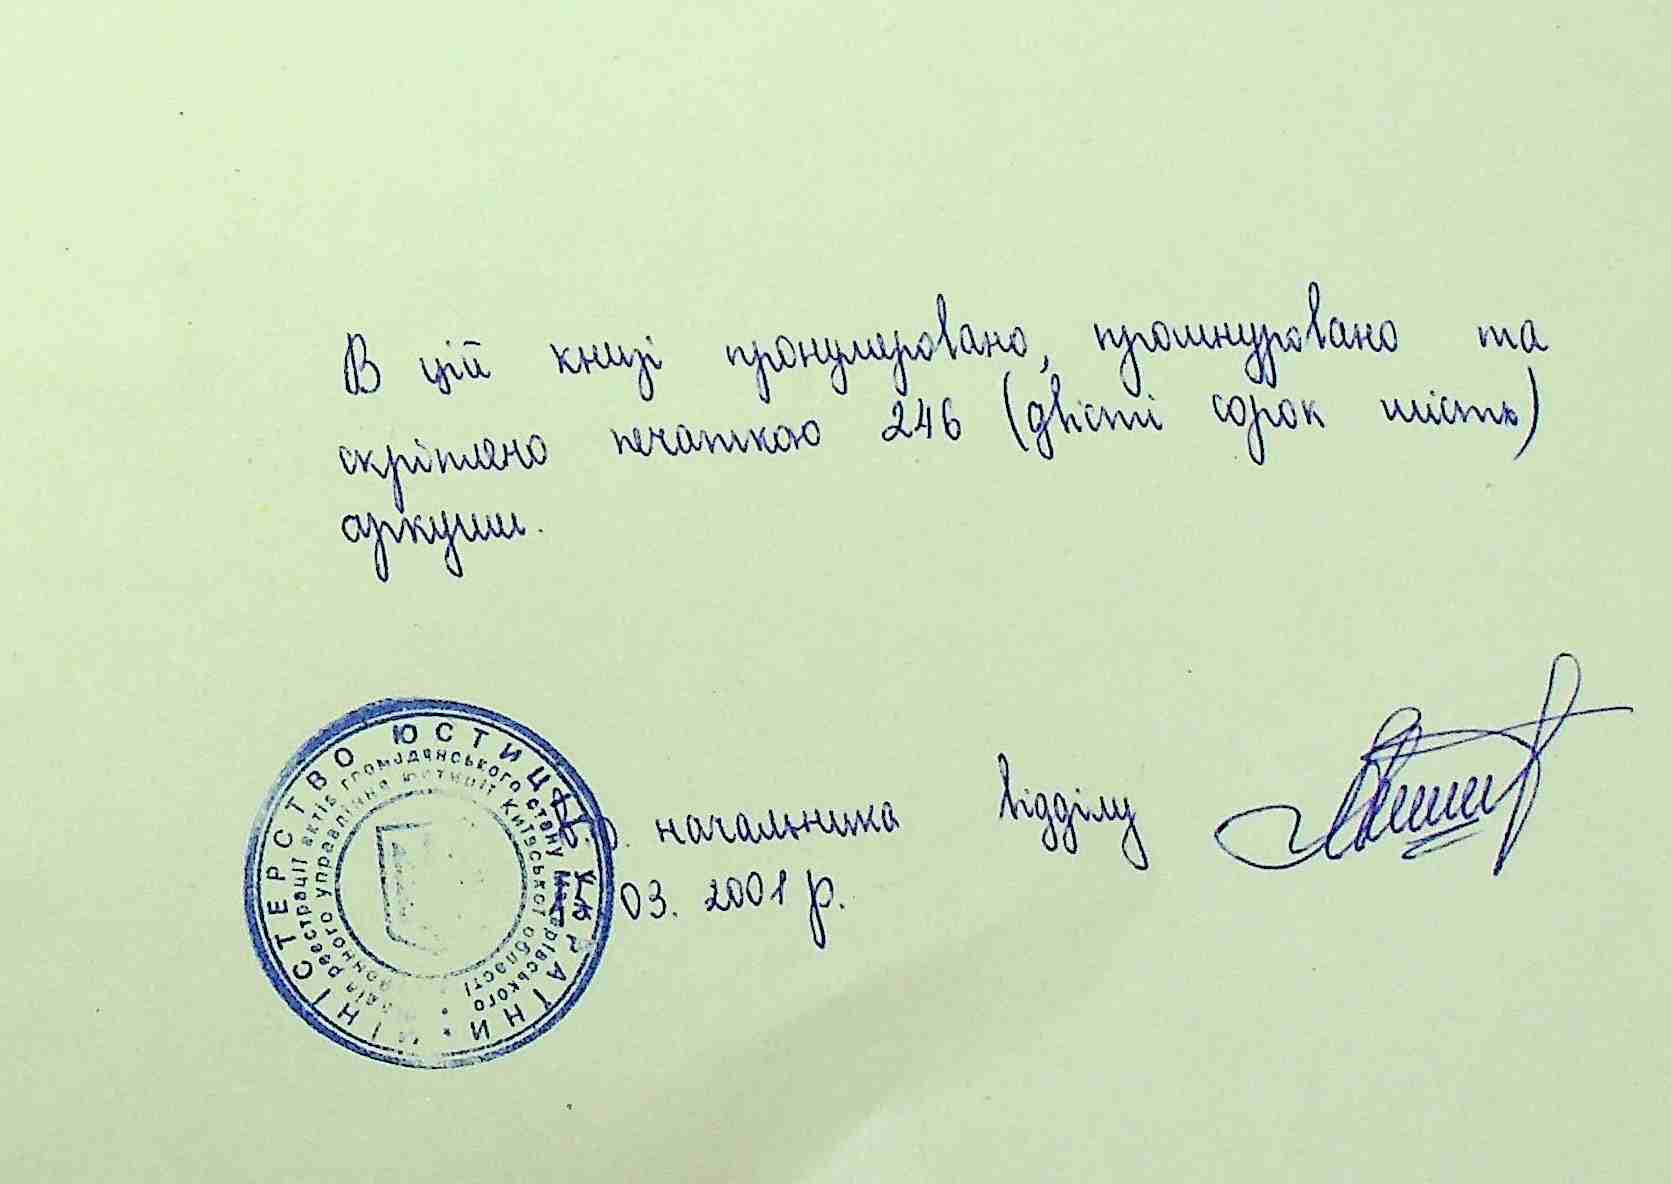 В цій книзі пронумеровано, прошнуровано та
скріплено печаткою 246 (двісті сорок шість)
аркуши.
МІНІСТЕРСТВО ЮСТИЦІЇ УКРАЇНИ
реєстрації актів громадянського стану Макарівського
управління юстиції Київської області
начальника відділу
03. 2001 р.